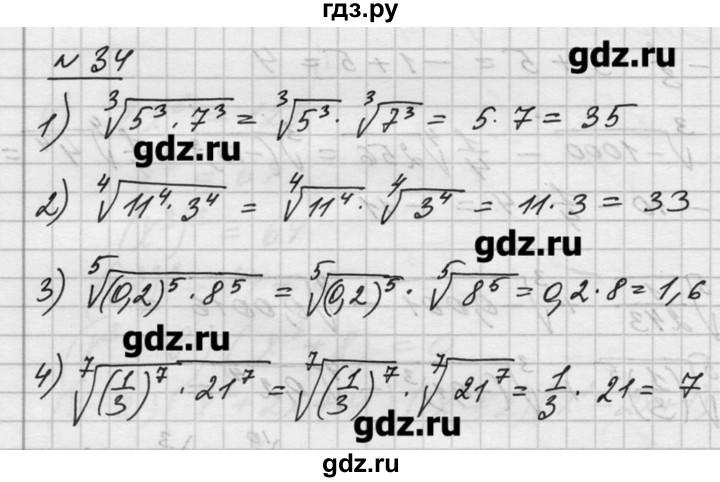 гдз.ру
№ 34
gdz.ru
1) ∛(5³ · 7³) = ∛5³ · ∛7³ = 5 · 7 = 35
gdz.ru
2) ∜(11⁴ · 3⁴) = ∜11⁴ · ∜3⁴ = 11 · 3 = 33
gdz.ru
3) ⁵√((0,2)⁵ · 8⁵) = ⁵√(0,2)⁵ · ⁵√8⁵ = 0,2 · 8 = 1,6
gdz.ru
4) ⁷√((1/3)⁷ · 21⁷) = ⁷√(1/3)⁷ · ⁷√21⁷ = 1/3 · 21 = 7
gdz.ru
gdz.ru